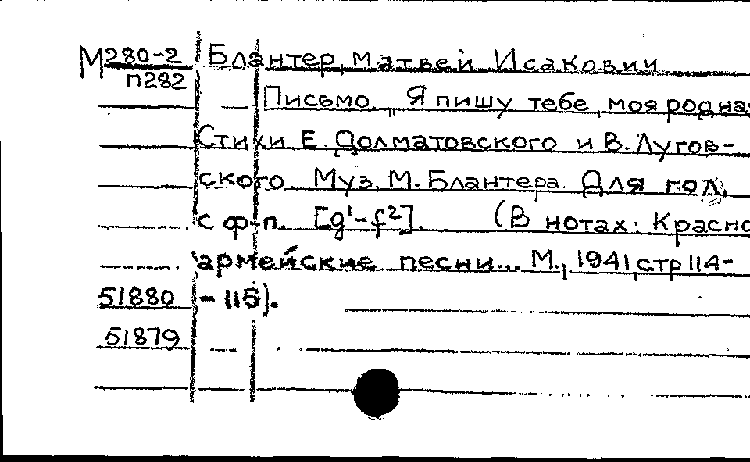 М280-2 Блантер, Матвей Исакович
П282
Письмо „Я пишу тебе, моя родная
Стихи Е. Долматовского и В. Лугов-
ского. Муз. М. Блантера. Для гол.
с ф-п. [g¹-f²]. (В нотах: Красно
армейские песни... М., 1941, стр 114-
51880 -115).
51879